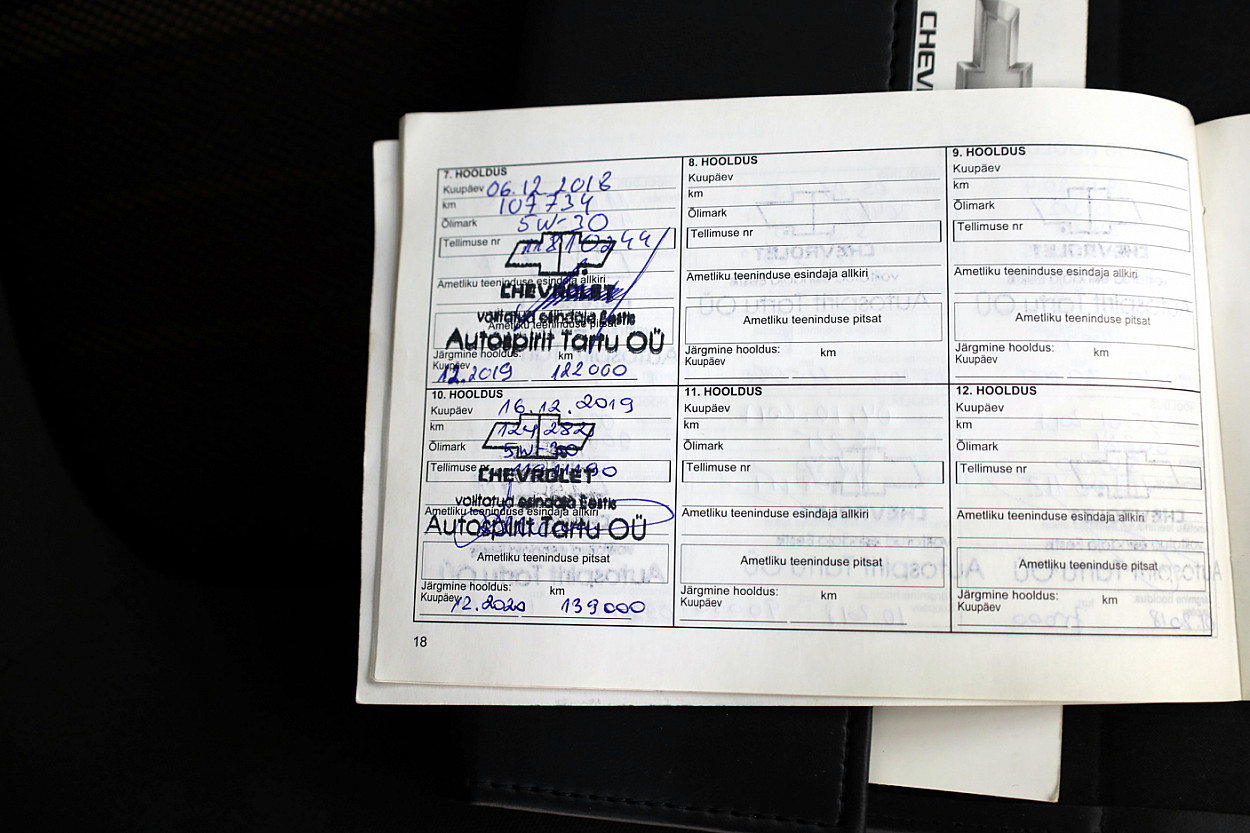 CHEV
7. HOOLDUS
Kuupäev 06.12.2018
km 107734
Õlimark 5W-30
Tellimuse nr
CHEVROLET
Ametliku teeninduse esindaja allkiri
volitatud esindaja Eestis
Ametliku teeninduse pitsat
Autospirit Tartu OÜ
Järgmine hooldus: km
Kuupäev 12.2019 122000
8. HOOLDUS
Kuupäev
km
Õlimark
Tellimuse nr
Ametliku teeninduse esindaja allkiri
Ametliku teeninduse pitsat
Järgmine hooldus: km
Kuupäev
9. HOOLDUS
Kuupäev
km
Õlimark
Tellimuse nr
Ametliku teeninduse esindaja allkiri
Ametliku teeninduse pitsat
Järgmine hooldus: km
Kuupäev
10. HOOLDUS
Kuupäev 16.12.2019
km
Õlimark 5W-30
Tellimuse nr
CHEVROLET
volitatud esindaja Eestis
Ametliku teeninduse esindaja allkiri
Autospirit Tartu OÜ
Ametliku teeninduse pitsat
Järgmine hooldus: km
Kuupäev 12.2020 139000
11. HOOLDUS
Kuupäev
km
Õlimark
Tellimuse nr
Ametliku teeninduse esindaja allkiri
Ametliku teeninduse pitsat
Järgmine hooldus: km
Kuupäev
12. HOOLDUS
Kuupäev
km
Õlimark
Tellimuse nr
Ametliku teeninduse esindaja allkiri
Ametliku teeninduse pitsat
Järgmine hooldus: km
Kuupäev
18